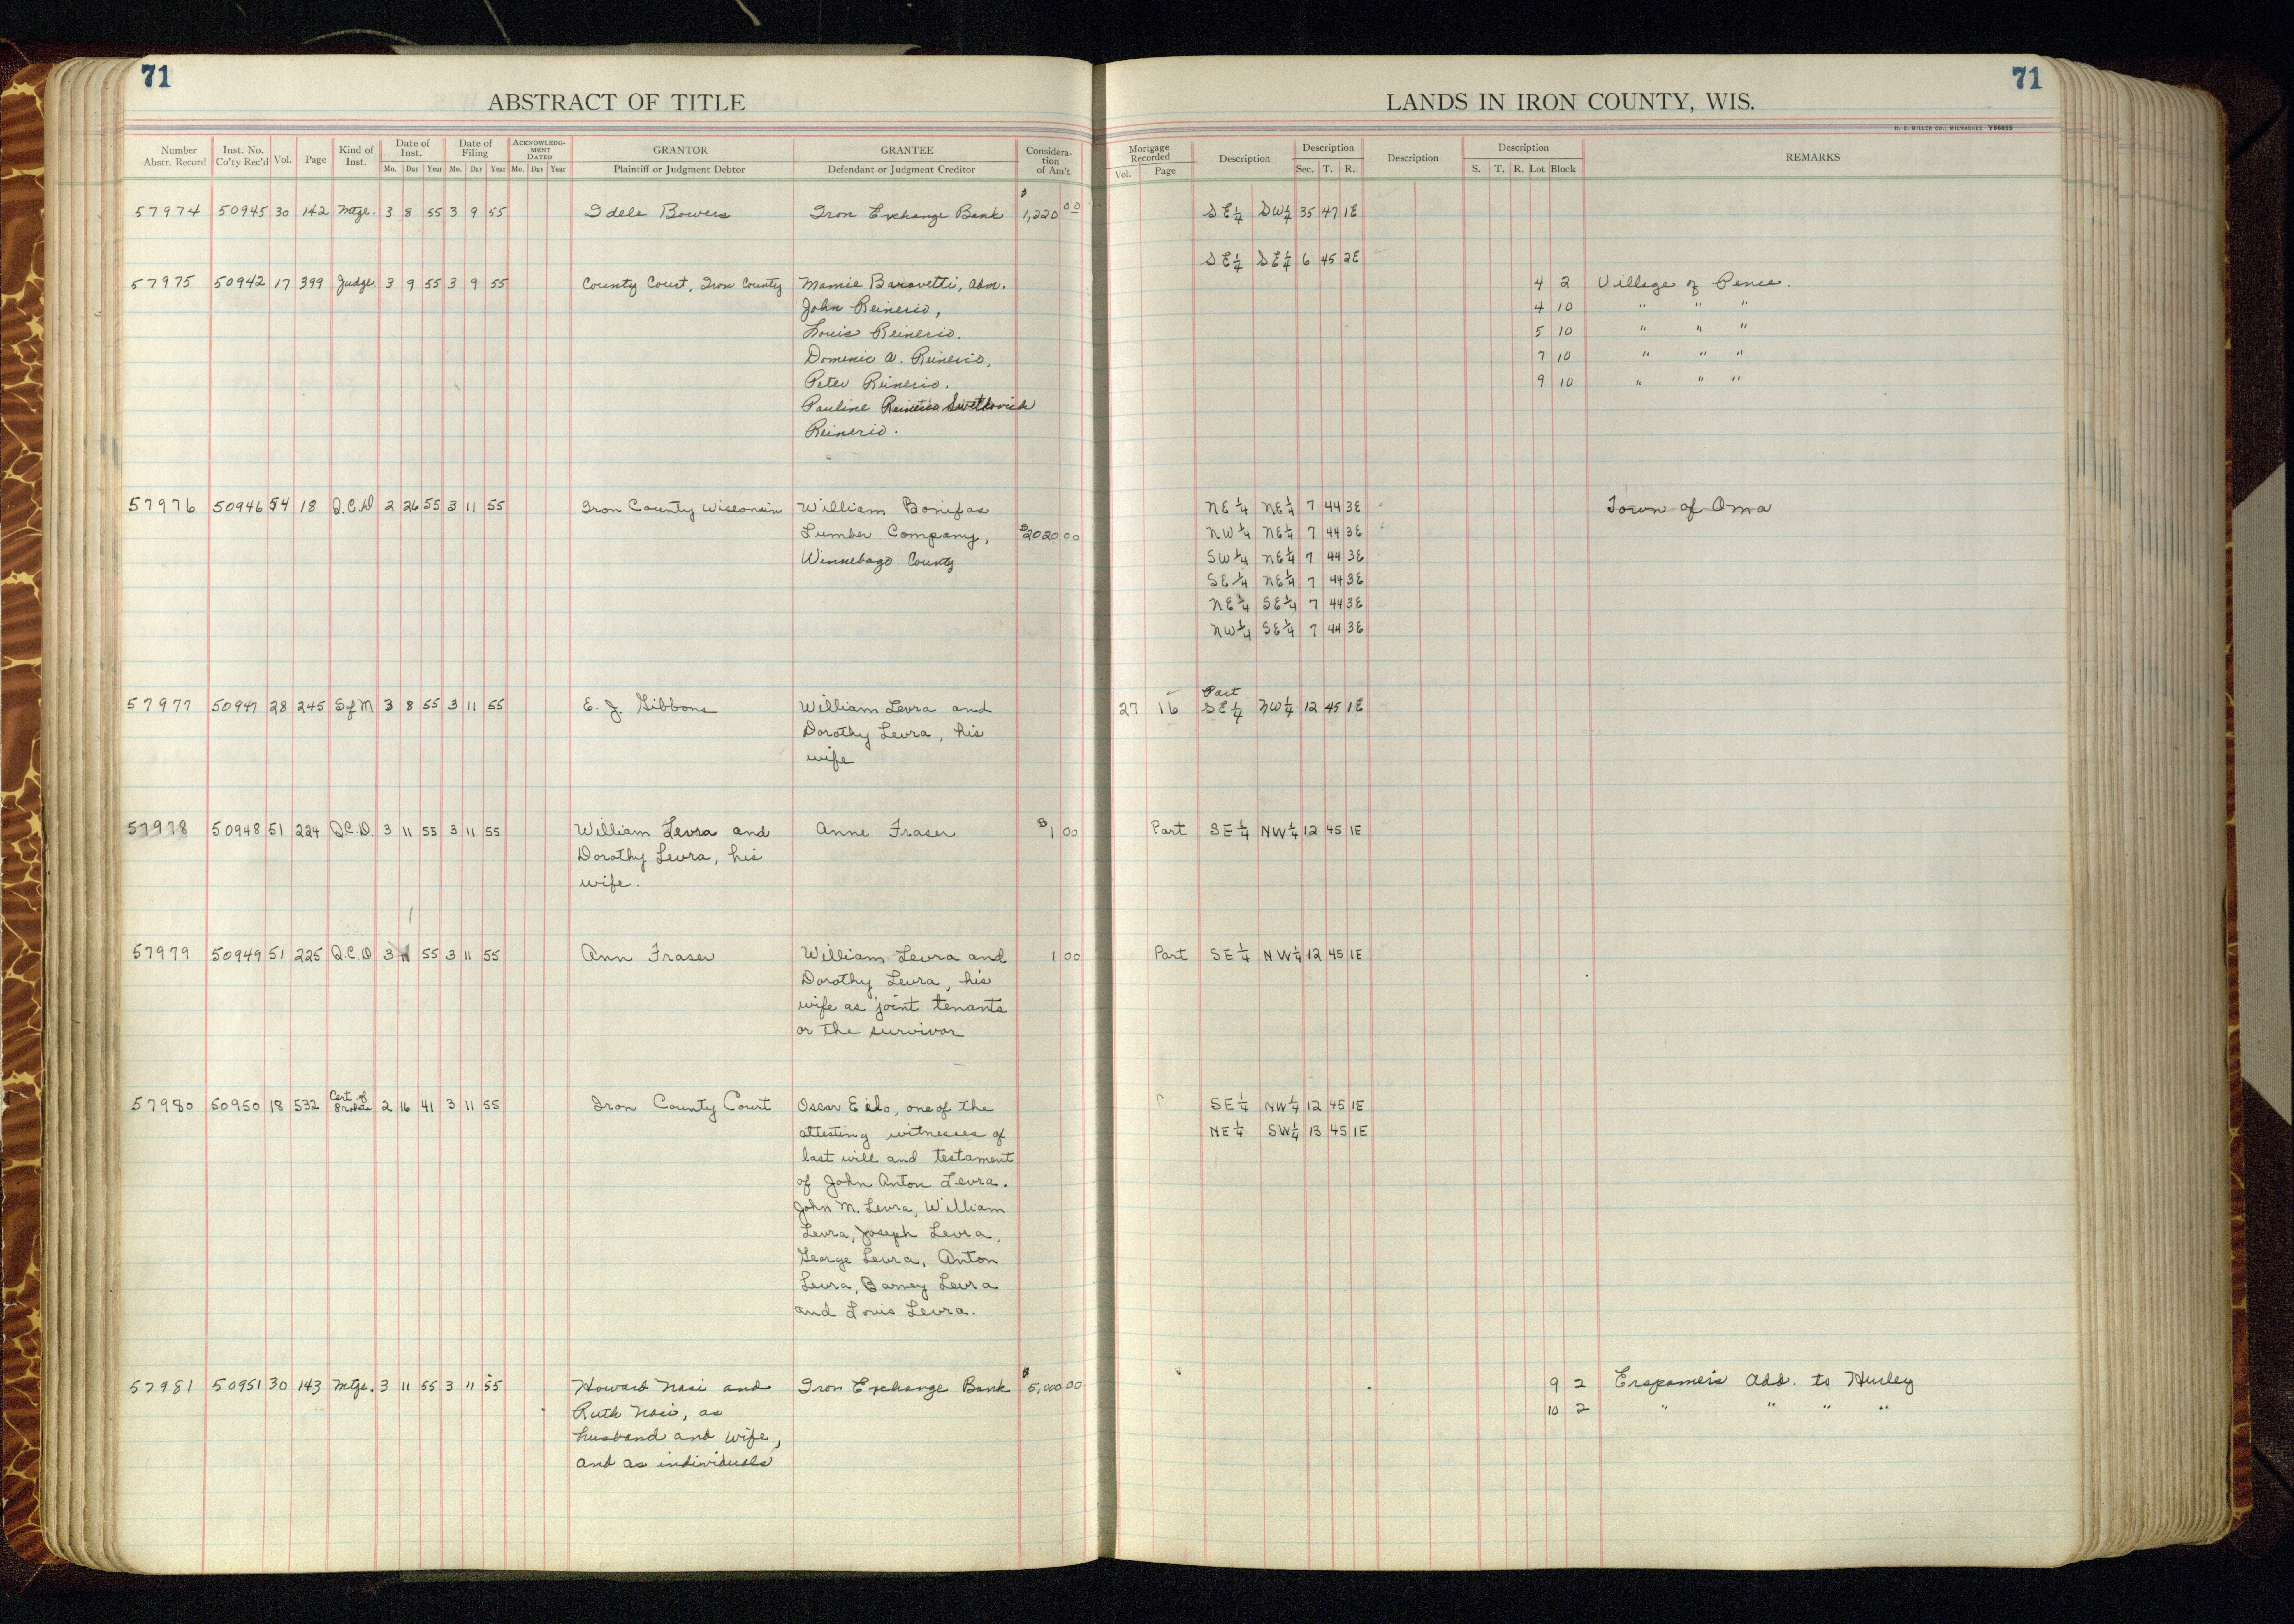 71
71
ABSTRACT OF TITLE
LANDS IN IRON COUNTY, WIS.
H. C. MILLER CO., MILWAUKEE Y66855
Number Abstr. Record Inst. No. Co'ty Rec'd Vol. Page Kind of Inst. Date of Inst. Mo. Day Year Date of Filing Mo. Day Year ACKNOWLEDGMENT DATED Mo. Day Year GRANTOR Plaintiff or Judgment Debtor GRANTEE Defendant or Judgment Creditor Consideration of Am't
Mortgage Recorded Vol. Page Description Description Sec. T. R. Description Description S. T. R. Lot Block REMARKS
57974 50945 30 142 Mtge. 3 8 55 3 9 55 Idele Bowers Iron Exchange Bank $1,220 00 SE¼ SW¼ 35 47 1E
SE¼ SE¼ 6 45 2E
57975 50942 17 399 Judge. 3 9 55 3 9 55 County Court, Iron County Mamie Baravetti, Adm. 4 2 Village of Pence.
John Reinerio, 4 10 " " "
Louis Reinerio. 5 10 " " "
Domenic A. Reinerio. 7 10 " " "
Peter Reinerio. 9 10 " " "
Pauline Reinerio Swetkovich
Reinerio.
57976 50946 54 18 Q.C.D 2 26 55 3 11 55 Iron County Wisconsin William Bonifas NE¼ NE¼ 7 44 3E Town of Oma
Lumber Company, $2020 00 NW¼ NE¼ 7 44 3E
Winnebago County SW¼ NE¼ 7 44 3E
SE¼ NE¼ 7 44 3E
NE¼ SE¼ 7 44 3E
NW¼ SE¼ 7 44 3E
Part
57977 50947 28 245 S of M 3 8 55 3 11 55 E. J. Gibbons William Levra and 27 16 SE¼ NW¼ 12 45 1E
Dorothy Levra, his
wife
57978 50948 51 224 Q.C.D. 3 11 55 3 11 55 William Levra and Anne Fraser $1 00 Part SE¼ NW¼ 12 45 1E
Dorothy Levra, his
wife.
57979 50949 51 225 Q.C.D 3 11 55 3 11 55 Ann Fraser William Levra and 1 00 Part SE¼ NW¼ 12 45 1E
Dorothy Levra, his
wife as joint tenants
or the survivor
57980 50950 18 532 Cert. of Probate 2 16 41 3 11 55 Iron County Court Oscar Eilo, one of the SE¼ NW¼ 12 45 1E
attesting witnesses of NE¼ SW¼ 13 45 1E
last will and testament
of John Anton Levra.
John M. Levra, William
Levra, Joseph Levra,
George Levra, Anton
Levra, Barney Levra
and Louis Levra.
57981 50951 30 143 Mtge. 3 11 55 3 11 55 Howard Nasi and Iron Exchange Bank $5,000 00 9 2 Erspamers Add. to Hurley
Ruth Nasi, as 10 2 " " " "
husband and wife,
and as individuals